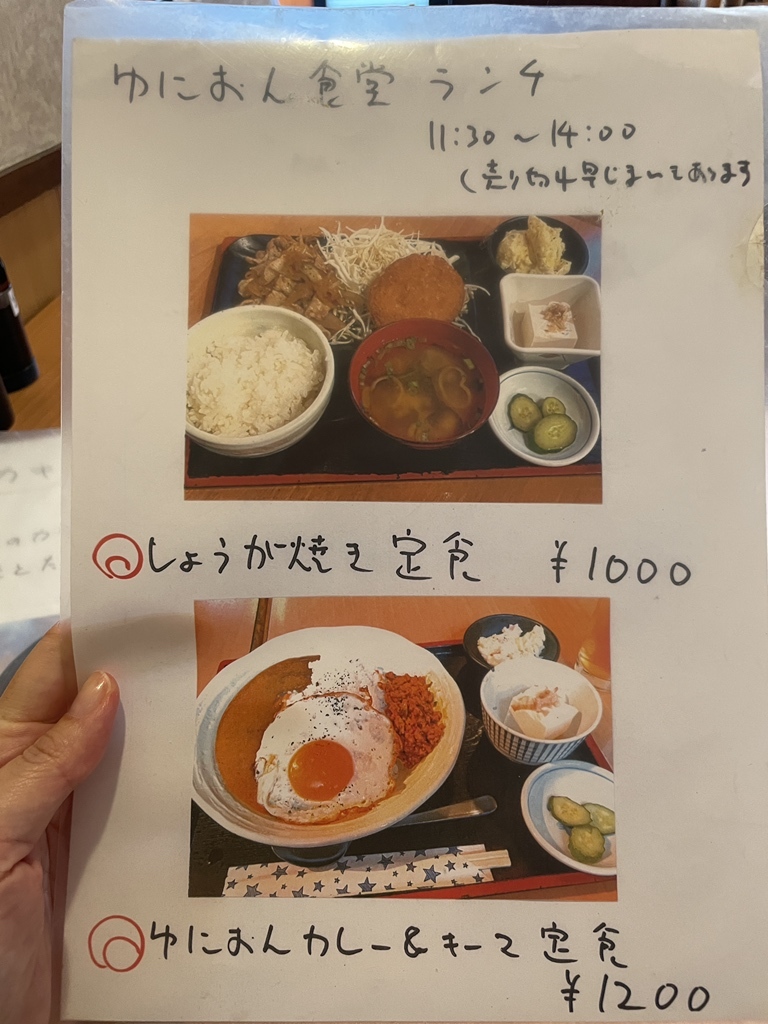 ゆにおん食堂 ランチ
11:30～14:00
(売り切れ早じまいもあります
しょうが焼き定食 ¥1000
ゆにおんカレー&キーマ定食
¥1200